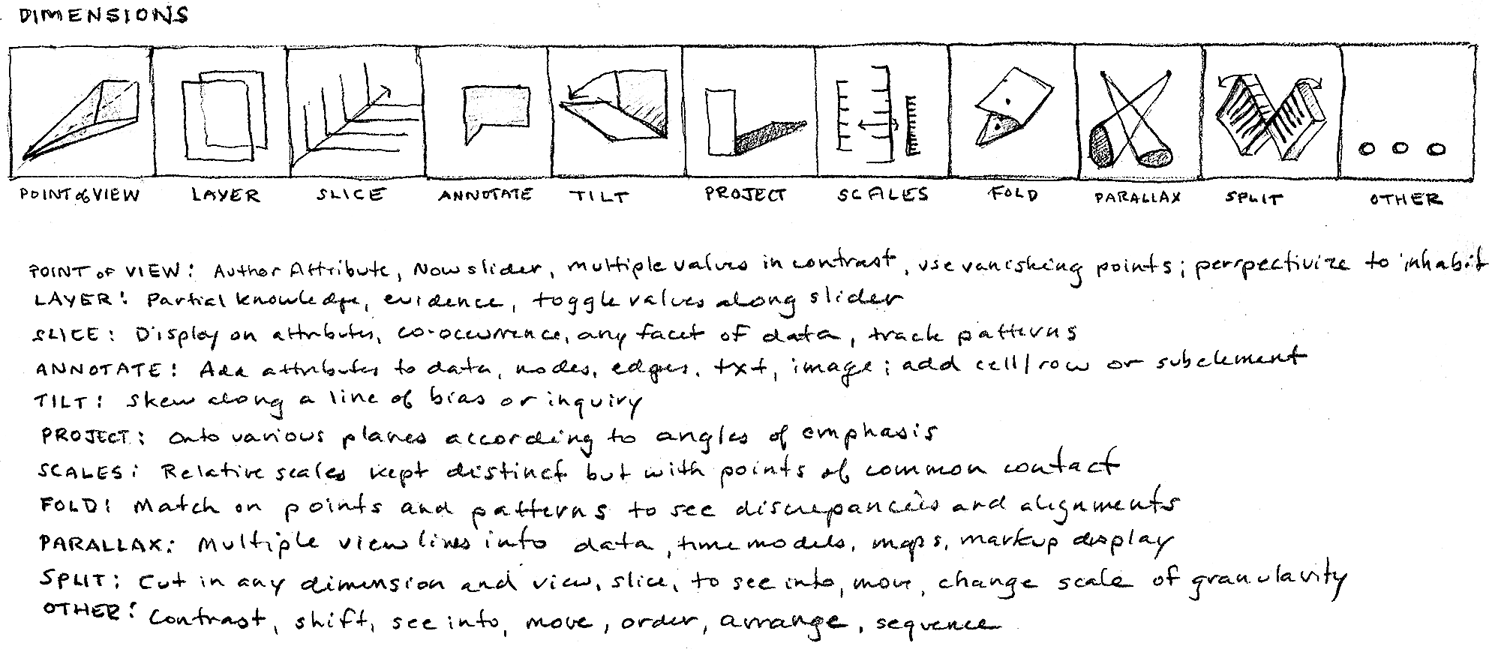 DIMENSIONS
POINT of VIEW LAYER SLICE ANNOTATE TILT PROJECT SCALES FOLD PARALLAX SPLIT OTHER
POINT of VIEW: Author Attribute, Now slider, multiple values in contrast, use vanishing points; perspectivize to inhabit
LAYER: Partial knowledge, evidence, toggle values along slider
SLICE: Display on attributes, co-occurrence, any facet of data, track patterns
ANNOTATE: Add attributes to data, nodes, edges, txt, image; add cell/row or subelement
TILT: Skew along a line of bias or inquiry
PROJECT: onto various planes according to angles of emphasis
SCALES: Relative scales kept distinct but with points of common contact
FOLD: Match on points and patterns to see discrepancies and alignments
PARALLAX: Multiple view lines into data, time models, maps, markup display
SPLIT: Cut in any dimension and view, slice, to see into, move, change scale of granularity
OTHER: Contrast, shift, see into, move, order, arrange, sequence